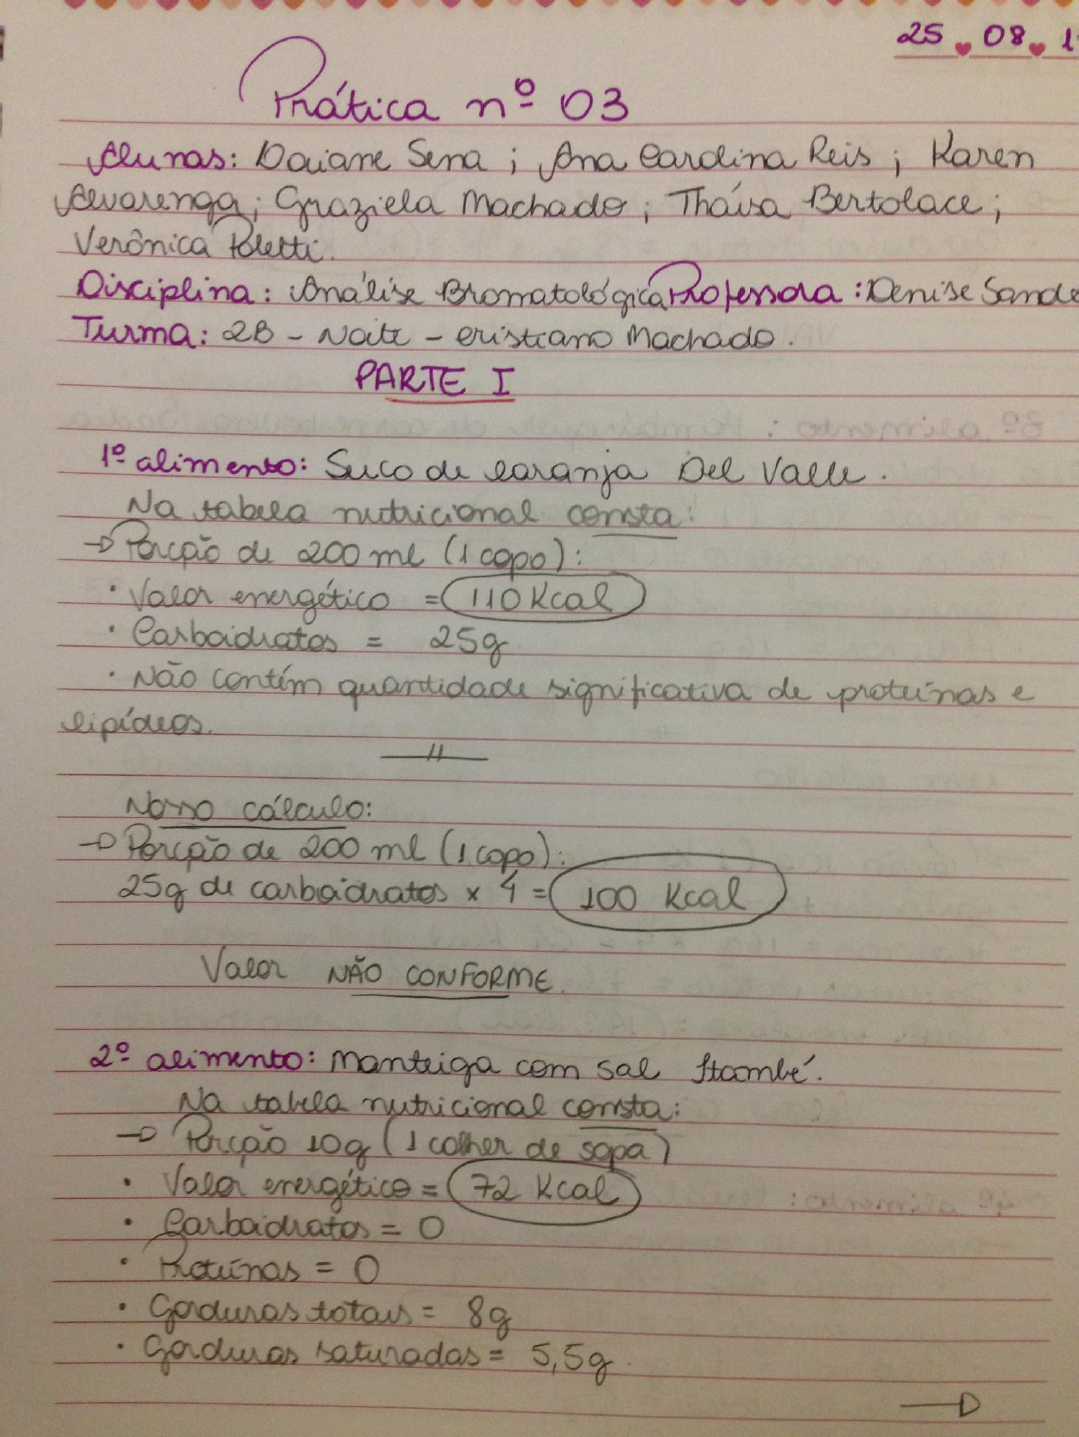 25.08.1
Prática nº 03
Alunas: Daiane Sena; Ana Carolina Reis; Karen
Alvarenga; Graziela Machado; Thaísa Bertolace;
Verônica Poletti.
Disciplina: Análise Bromatológica Professora: Denise Sande
Turma: 2B - Noite - Cristiano Machado.
PARTE I
1º alimento: Suco de laranja Del Valle.
Na tabela nutricional consta:
→ Porção de 200 ml (1 copo):
• Valor energético = 110 Kcal
• Carboidratos = 25g
• Não contém quantidade significativa de proteínas e
lipídeos.
Nosso cálculo:
→ Porção de 200 ml (1 copo):
25g de carboidratos x 4 = 100 Kcal
Valor NÃO CONFORME.
2º alimento: Manteiga com sal Itambé.
Na tabela nutricional consta:
→ Porção 10g (1 colher de sopa)
• Valor energético = 72 Kcal
• Carboidratos = 0
• Proteínas = 0
• Gorduras totais = 8g
• Gorduras saturadas = 5,5g.
→